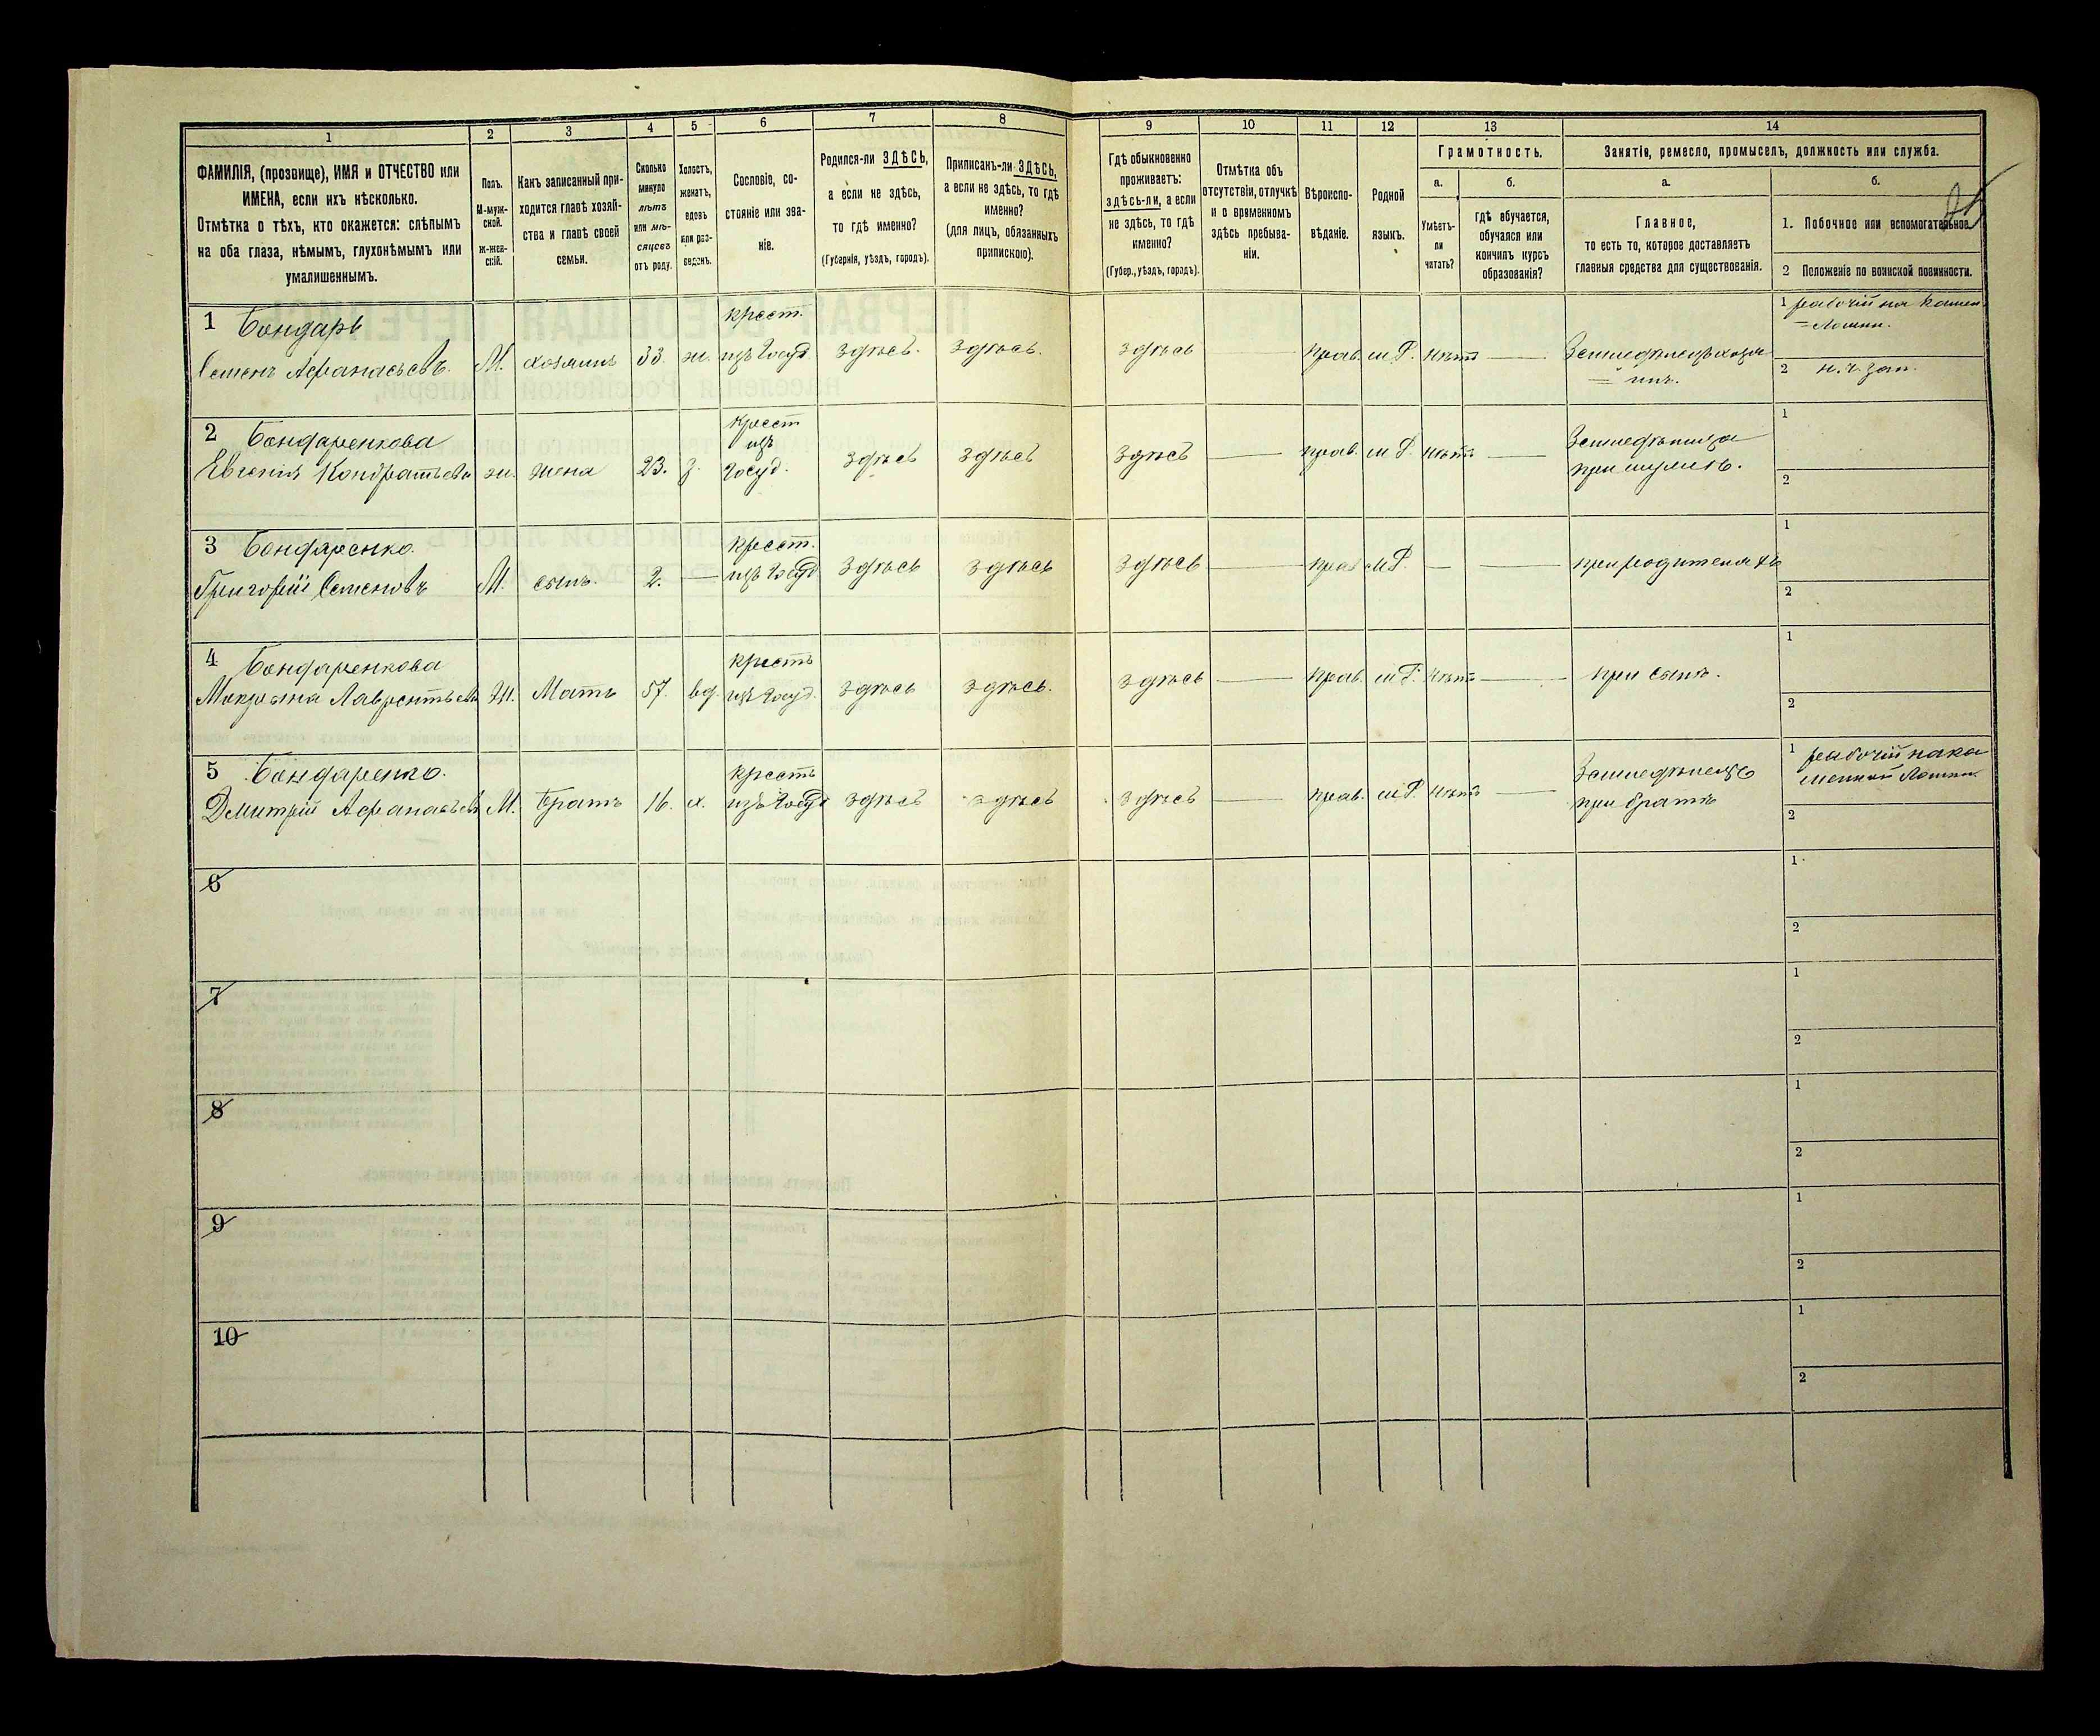 1 2 3 4 5 6 7 8 9 10 11 12 13 14
ФАМИЛІЯ, (прозвище), ИМЯ и ОТЧЕСТВО или
ИМЕНА, если ихъ нѣсколько.
Отмѣтка о тѣхъ, кто окажется: слѣпымъ
на оба глаза, нѣмымъ, глухонѣмымъ или
умалишеннымъ.
Полъ.
М-муж-
ской.
ж-жен-
скій.
Какъ записанный при-
ходится главѣ хозяй-
ства и главѣ своей
семьи.
Сколько
минуло
лѣтъ
или мѣ-
сяцевъ
отъ роду.
Холостъ,
женатъ,
вдовъ
или раз-
веденъ.
Сословіе, со-
стояніе или зва-
ніе.
Родился-ли ЗДѢСЬ,
а если не здѣсь,
то гдѣ именно?
(Губернія, уѣздъ, городъ).
Приписанъ-ли ЗДѢСЬ,
а если не здѣсь, то гдѣ
именно?
(для лицъ, обязанныхъ
припискою).
Гдѣ обыкновенно
проживаетъ:
здѣсь-ли, а если
не здѣсь, то гдѣ
именно?
(Губер., уѣздъ, городъ).
Отмѣтка объ
отсутствіи, отлучкѣ
и о временномъ
здѣсь пребыва-
ніи.
Вѣроиспо-
вѣданіе.
Родной
языкъ.
Грамотность.
а.
Умѣетъ-
ли
читать?
б.
гдѣ обучается,
обучался или
кончилъ курсъ
образованія?
Занятіе, ремесло, промыселъ, должность или служба.
а.
Главное,
то есть то, которое доставляетъ
главныя средства для существованія.
б.
1. Побочное или вспомогательное.
2 Положеніе по воинской повинности.
1 Бондарь
Семенъ Афанасьевъ. М. хозяинъ 33. ж.
крест.
изъ Госуд. здѣсь. здѣсь. здѣсь — прав. м.Р. нѣтъ — Земледѣлецъ хозя
= инъ.
1 рабочій на камен.
=Ломки.
2 н. ч. зап.
2 Бондаренкова
Евгенія Кондратьева ж. жена 23. з.
крест
изъ
Госуд. здѣсь здѣсь здѣсь — прав. м Р. нѣтъ — Земледѣлица
при мужѣ.
1
2
3 Бондаренко.
Григорій Семеновъ М. сынъ. 2. —
крест.
изъ Госуд здѣсь здѣсь здѣсь — прав м Р. — — при родителяхъ
1
2
4 Бондаренкова
Макрына Лаврентьева Ж. Мать 57. вд.
крестъ
изъ Госуд. здѣсь здѣсь. здѣсь — прав. м Р. нѣтъ — при сынѣ.
1
2
5 Бондаренко.
Дмитрій Афанасьевъ М. братъ 16. х.
крестъ
изъ Госуд здѣсь здѣсь здѣсь — прав. м Р. нѣтъ — Земледѣлецъ
при братѣ
1 рабочій на ка
менной Ломки.
2
6
1
2
7
1
2
8
1
2
9
1
2
10
1
2